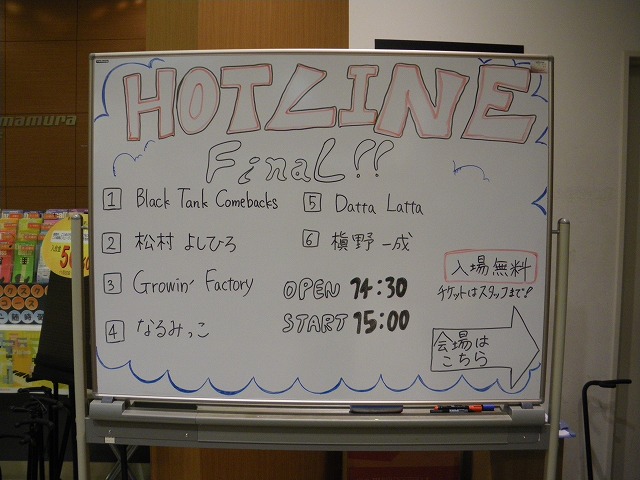 HOTLINE
FinaL!!
1 Black Tank Comebacks
2 松村 よしひろ
3 Growin' Factory
4 なるみっこ
5 Datta Latta
6 槇野 一成
OPEN 14:30
START 15:00
入場無料
チケットはスタッフまで!
会場は
こちら
mamura